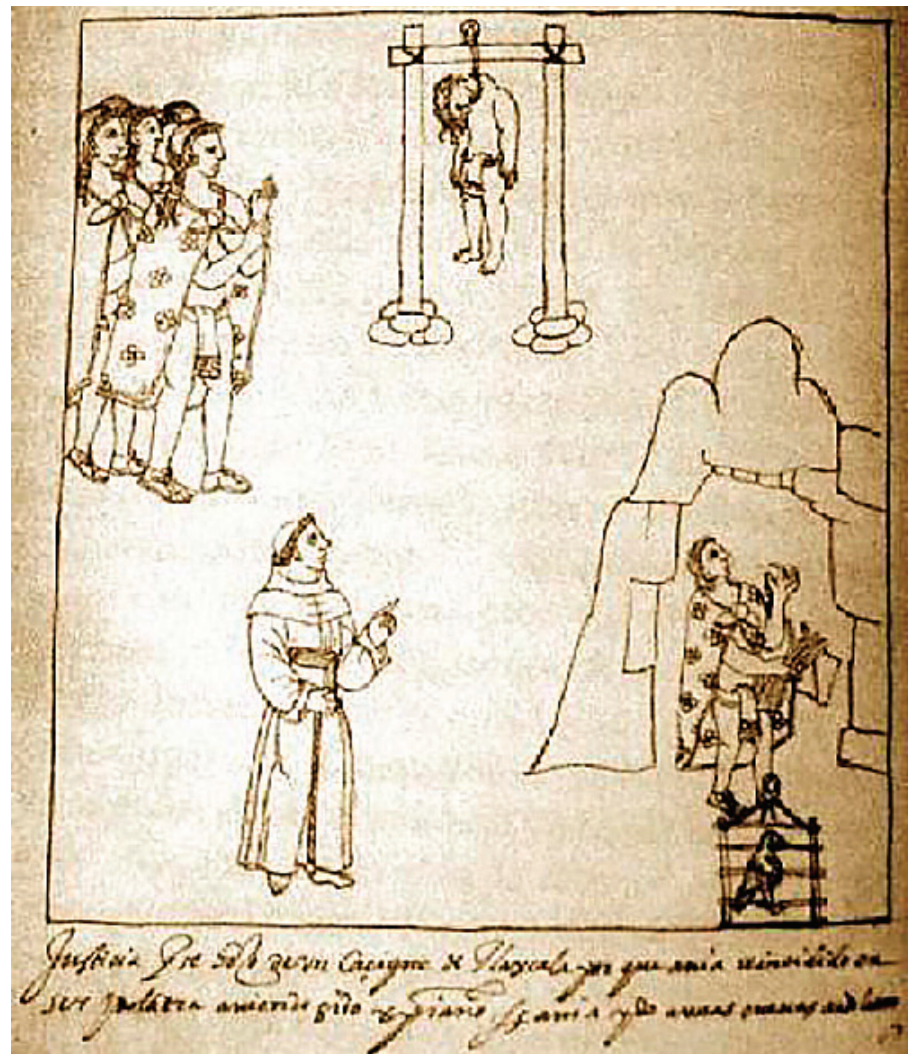 Justicia q̃ se hizo de un Caçique de Tlaxcala por que avia reinçidido en
ser ydolatra aviendo sido xp̃iano, y se avia ydo a unas cuevas a ydolatrar